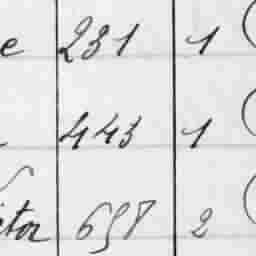 e 231 1
443 1
ctor 698 2